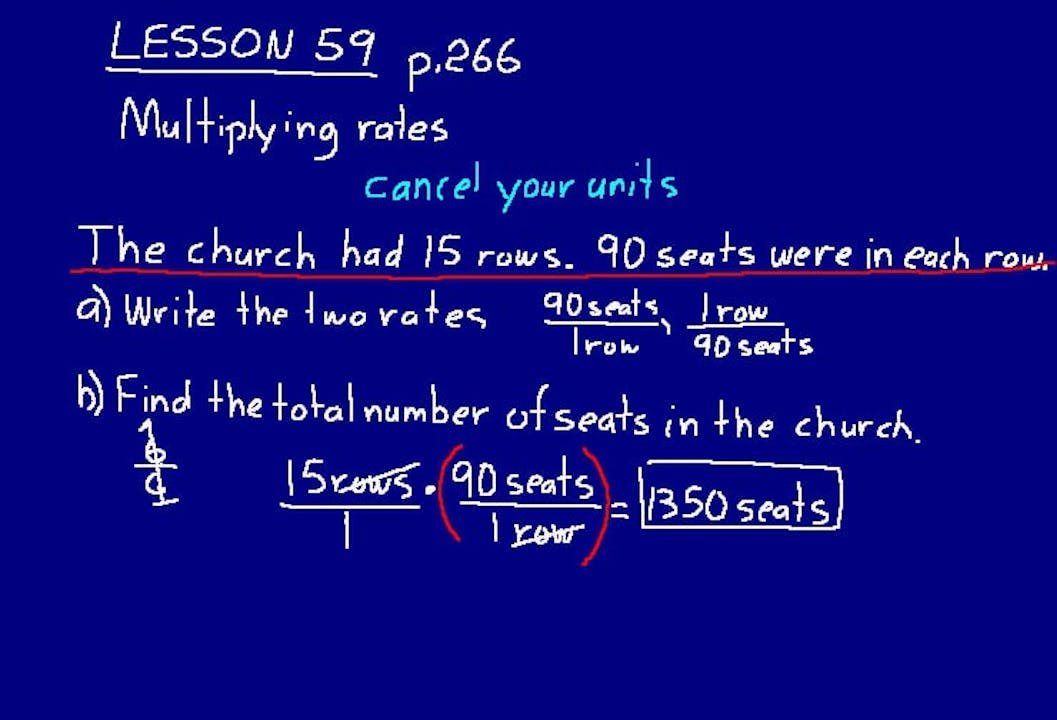 LESSON 59 p.266
Multiplying rates
cancel your units
The church had 15 rows. 90 seats were in each row.
a) Write the two rates 90 seats/1 row, 1 row/90 seats
b) Find the total number of seats in the church.
15 rows/1 · (90 seats/1 row) = 1350 seats